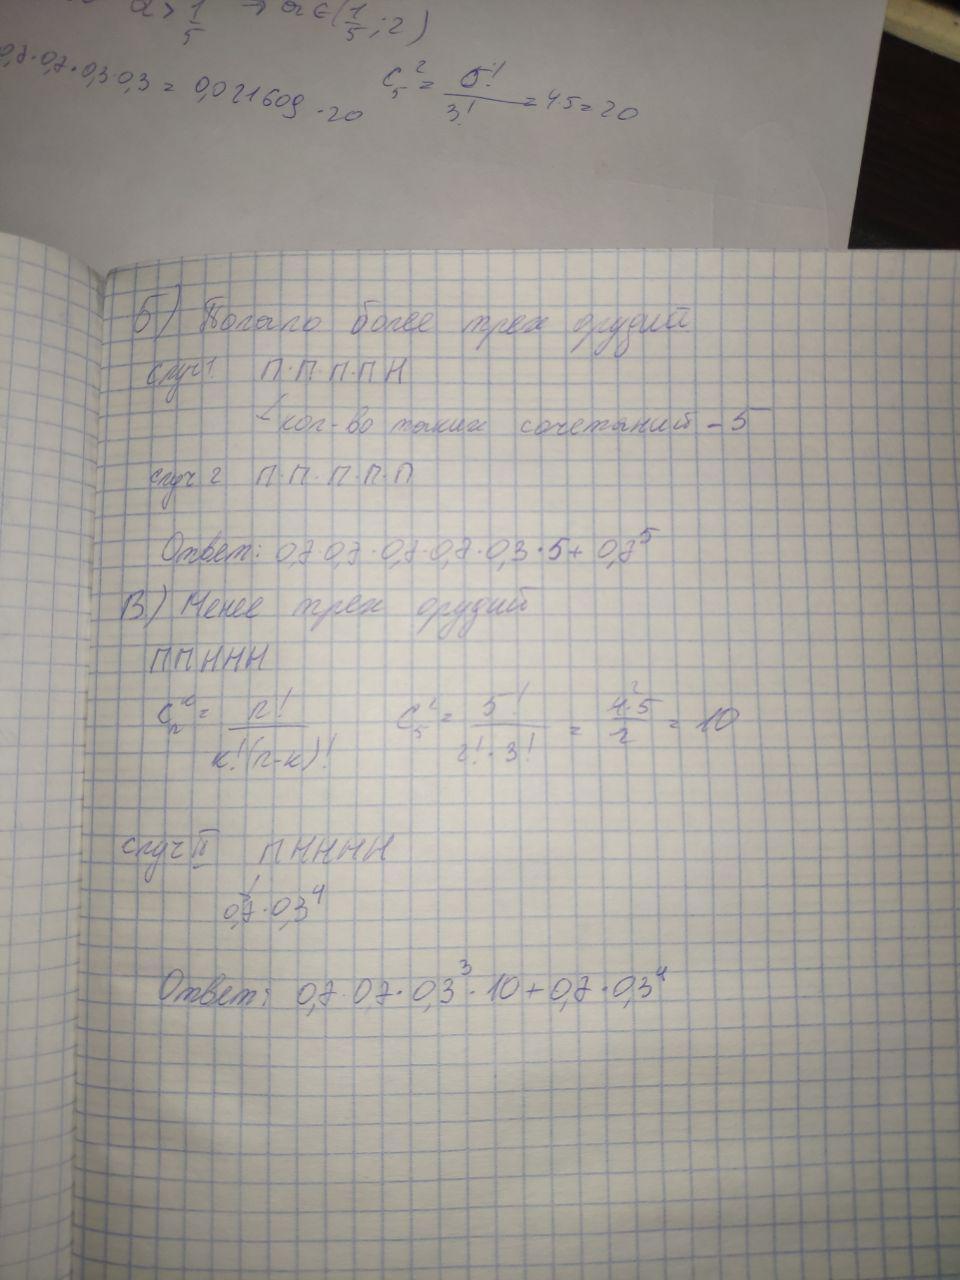 α > 1/5 → α ∈ (1/5; 2)
0,7·0,7·0,3·0,3 = 0,021609 · 20 C₅² = 5!/3! = 4·5 = 20
Б) Попало более трех орудий
случ 1 П·П·П·П Н
кол-во таких сочетаний - 5
случ 2 П·П·П·П·П
Ответ: 0,7·0,7·0,7·0,7·0,3·5 + 0,7⁵
В) Менее трех орудий
ППННН
Cₙᵏ = n!/k!(n-k)! C₅² = 5!/2!·3! = 4·5/2 = 10
случ II ПНННН
0,7·0,3⁴
Ответ: 0,7·0,7·0,3³·10 + 0,7·0,3⁴